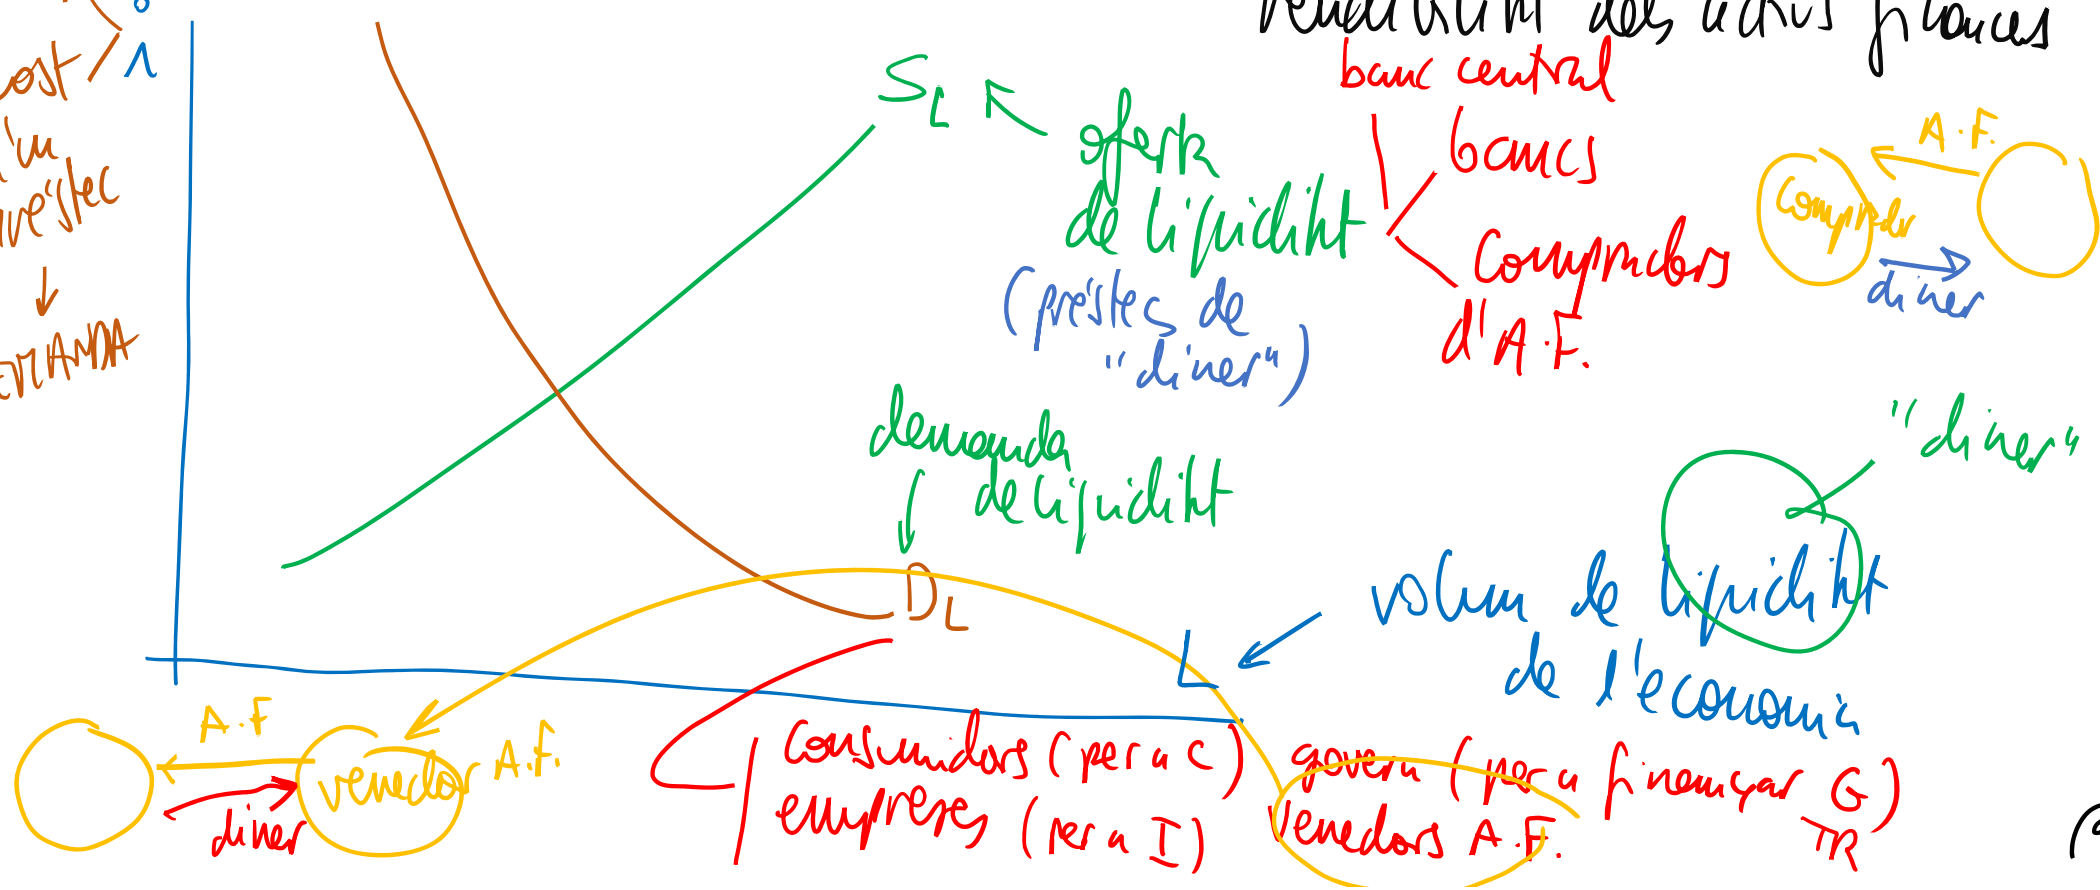 rendibilitat dels actius finances
cost
préstec
DEMANDA
S_L
oferta
de liquiditat
(préstecs de
"diner")
banc central
bancs
compradors
d'A.F.
A.F.
comprador
diner
demanda
de liquiditat
D_L
L
"diner"
volum de liquiditat
de l'economia
A.F
venedor A.F.
diner
consumidors (per a C)
empreses (per a I)
govern (per a finançar G)
TR
venedors A.F.